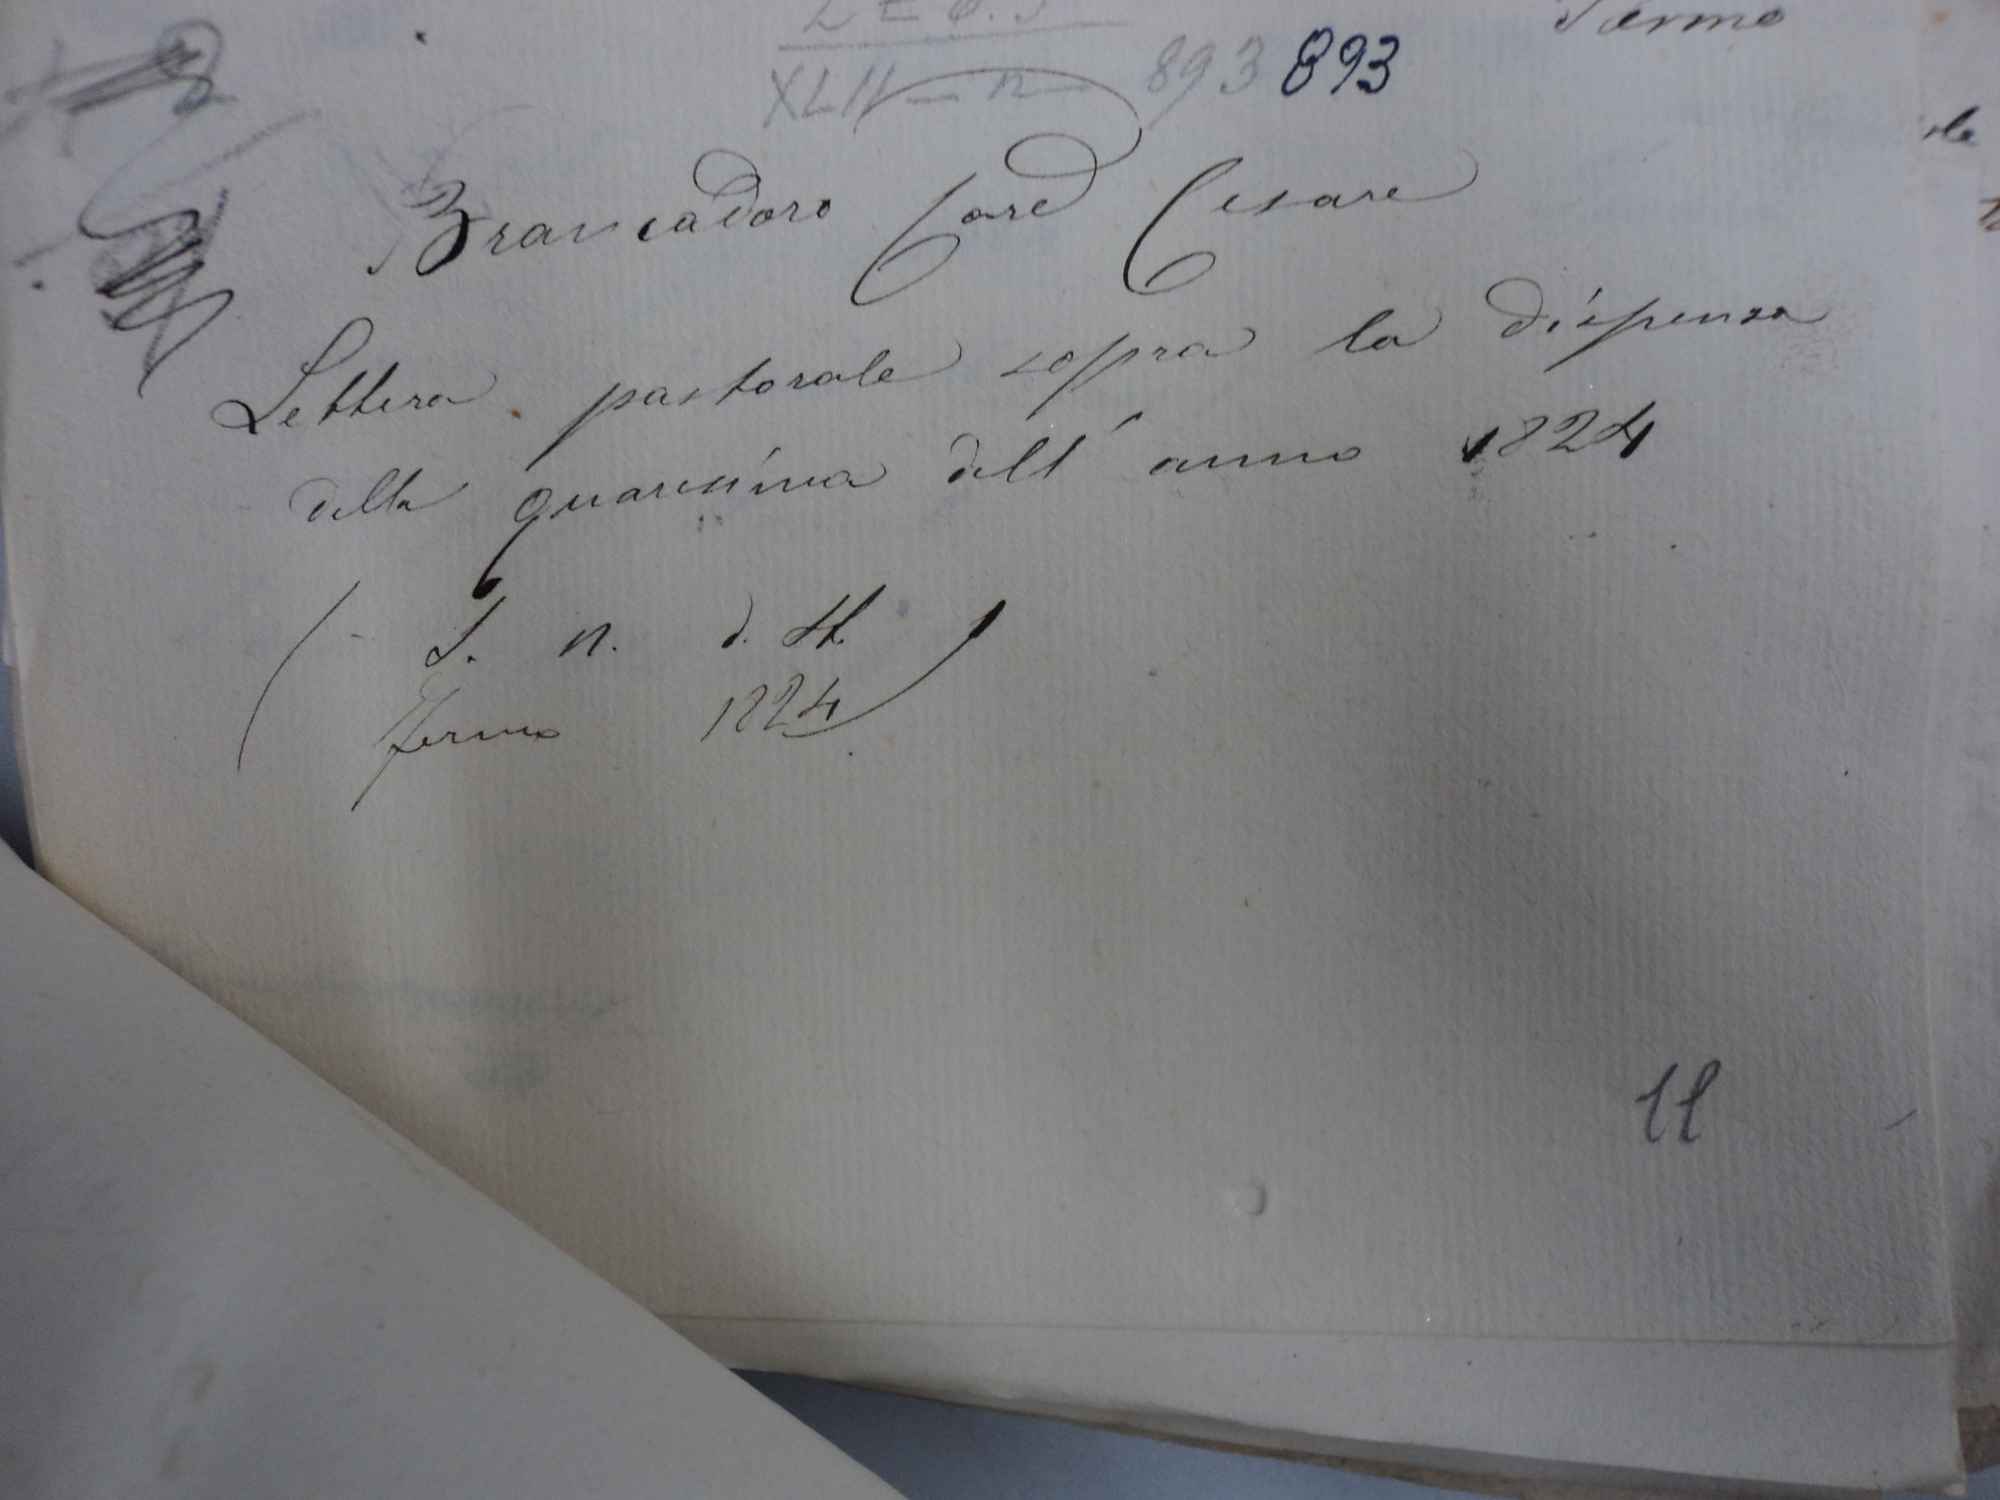 Fermo
XLII - n 893 893
Brancadoro Card Cesare
Lettera pastorale sopra la dispensa
della quaresima dell' anno 1824
( S. n. d. st.
Fermo 1824 )
11